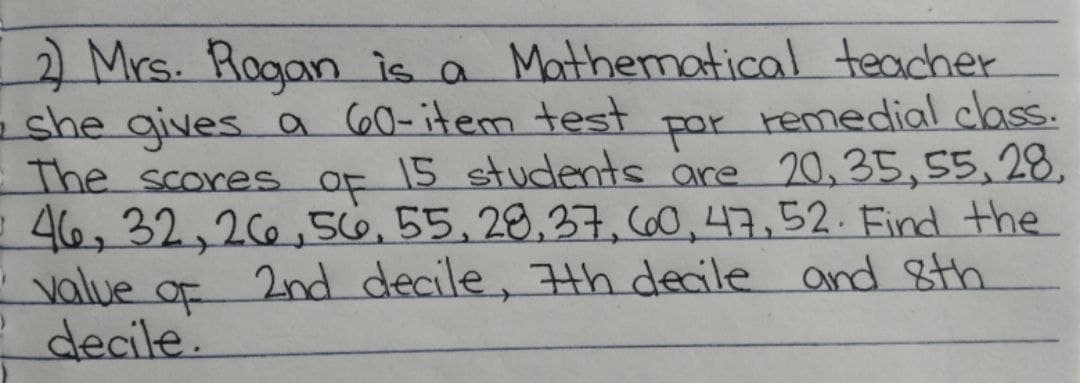 2) Mrs. Rogan is a Mathematical teacher
she gives a 60-item test por remedial class.
The scores of 15 students are 20, 35, 55, 28,
46, 32, 26, 56, 55, 28, 37, 60, 47, 52. Find the
value of 2nd decile, 7th decile and 8th
decile.